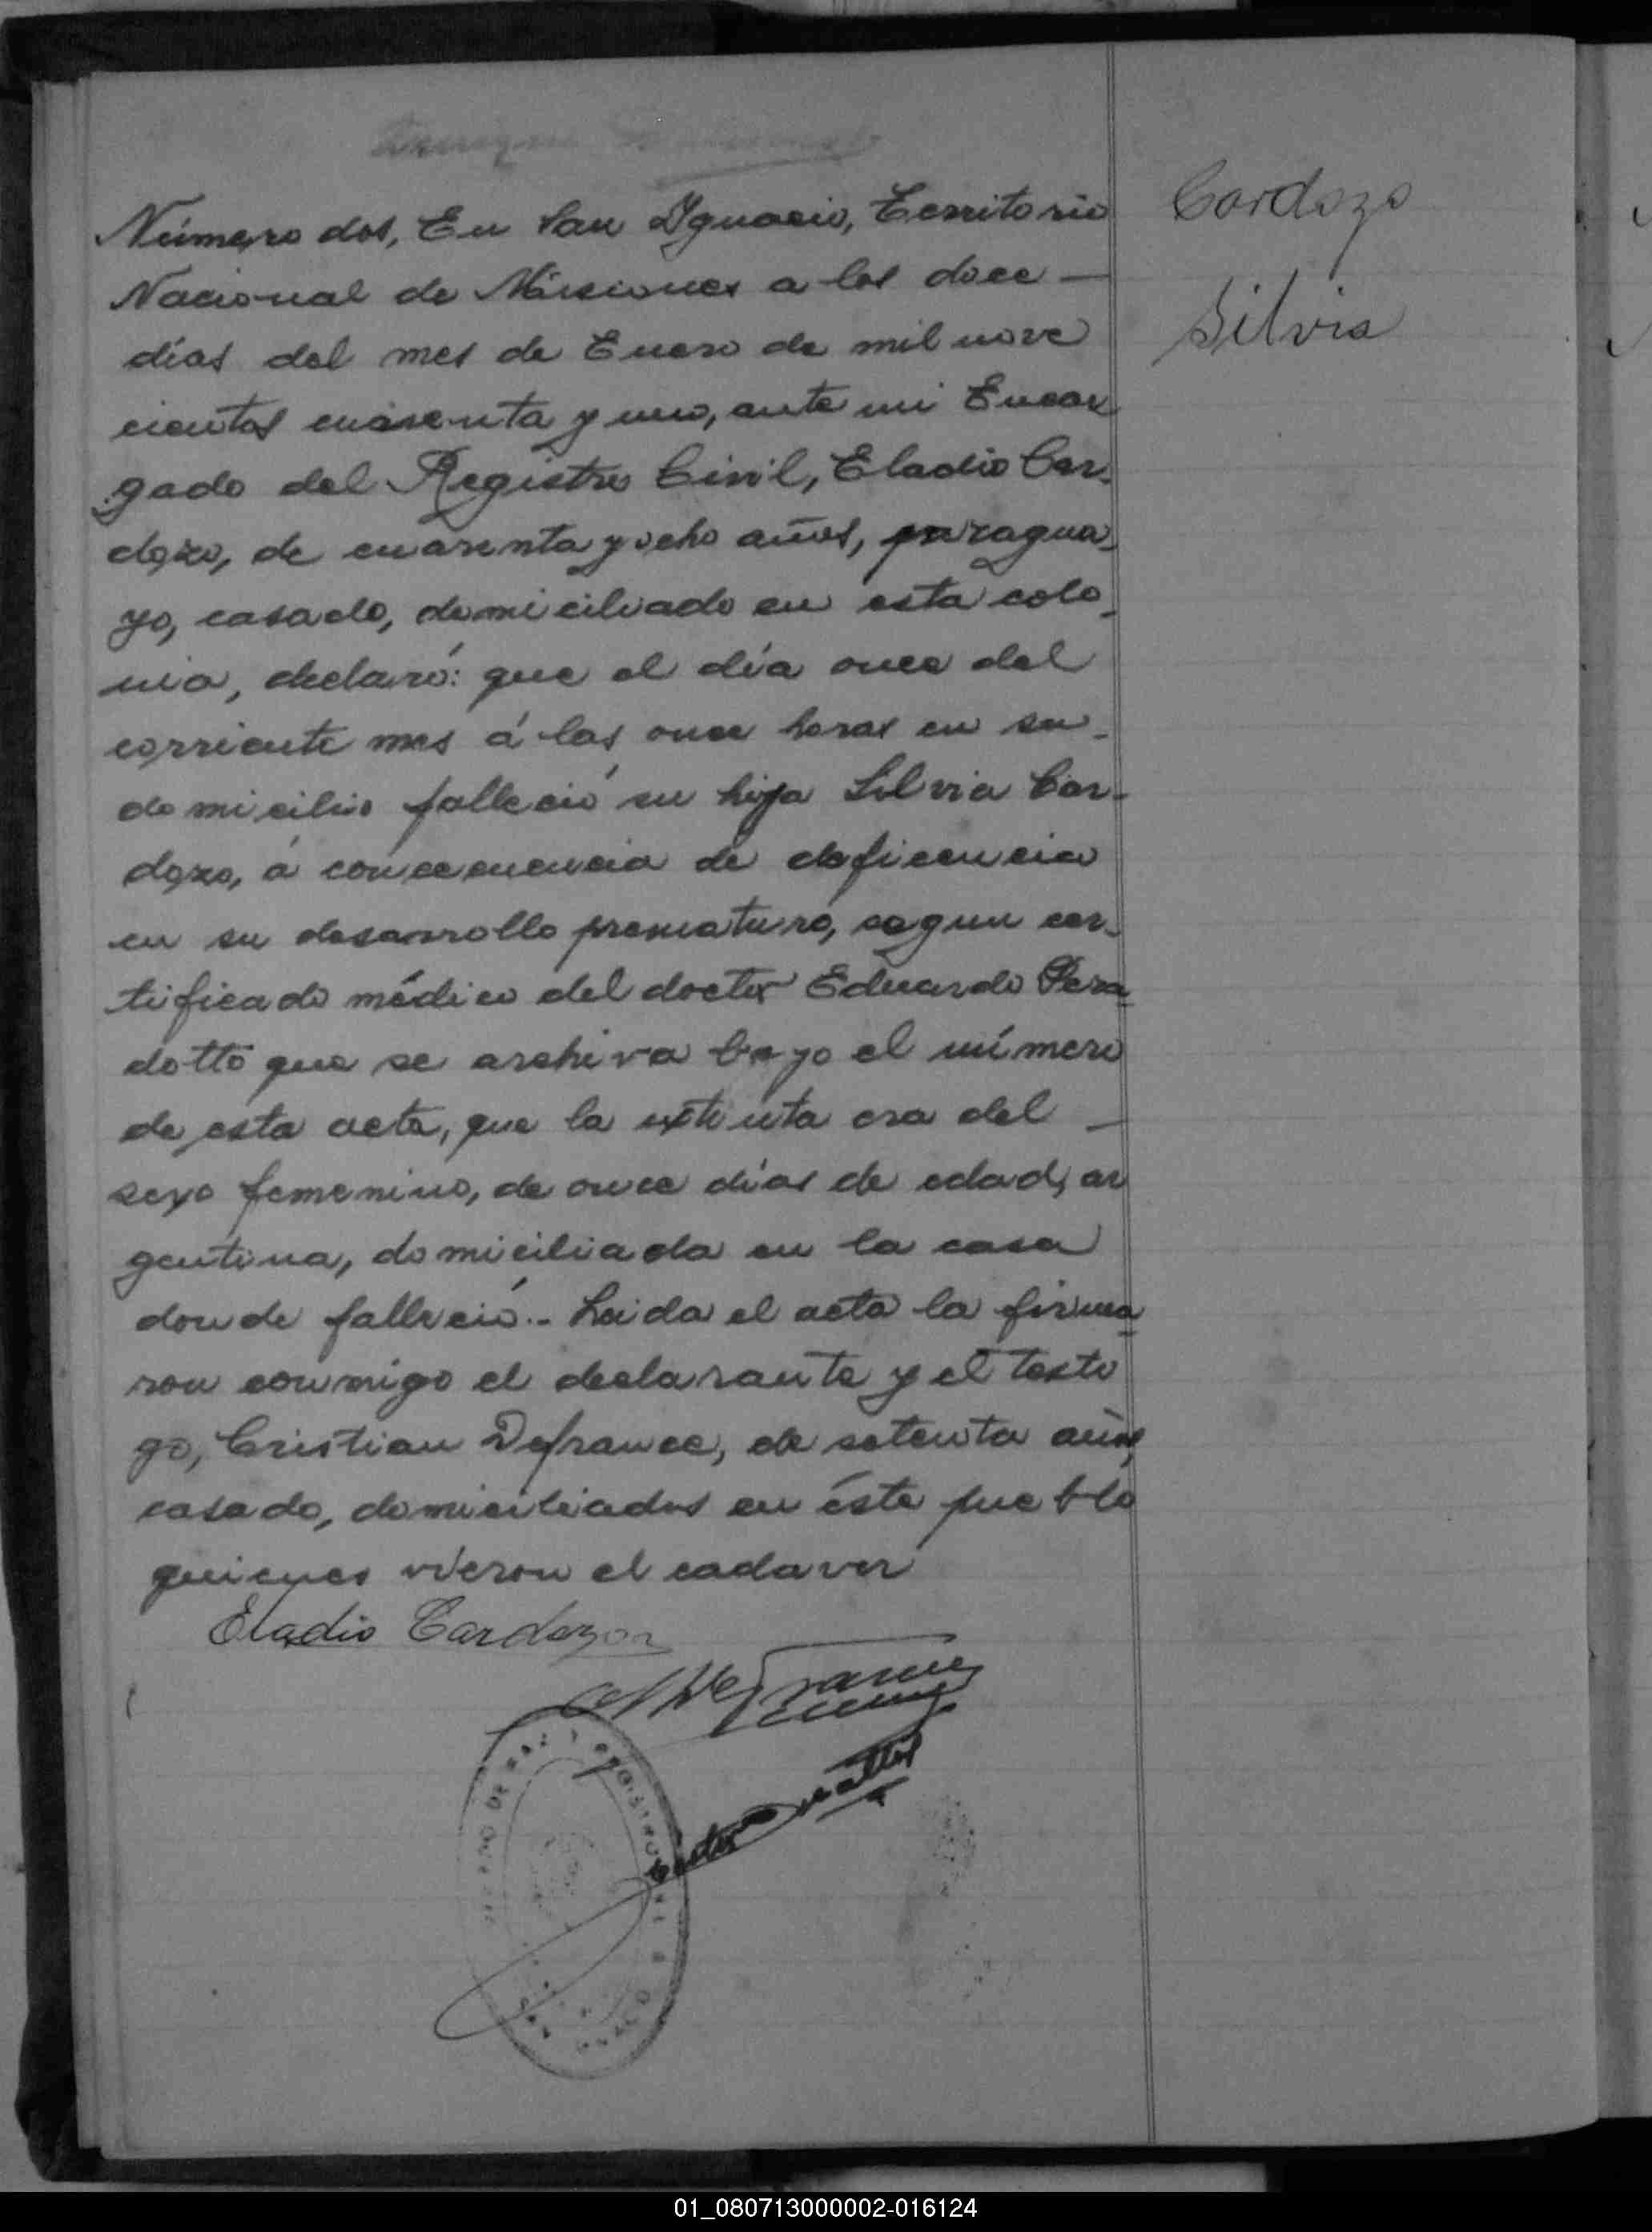 Número dos, En San Ygnacio, Territorio
Nacional de Misiones a los doce —
días del mes de Enero de mil nove
cientos cuarenta y uno, ante mi Encar
gado del Registro Civil, Eladio Car-
dozo, de cuarenta y ocho años, paragua-
yo, casado, domiciliado en esta colo-
nia, declaró: que el día once del
corriente mes á las once horas en su-
domicilio falleció su hija Silvia Car-
dozo, á concecuencia de deficiencia
en su desarrollo prematuro, segun cer-
tificado médico del doctor Eduardo Pera-
dotto que se archiva bajo el número
de esta acta, que la extinta era del —
sexo femenino, de once días de edad, ar
gentina, domiciliada en la casa
donde falleció.- Leida el acta la firma-
ron conmigo el declarante y el testi
go, Cristian Defrance, de setenta años,
casado, domiciliados en éste pueblo
quienes vieron el cadaver
Cardozo
Silvia
Eladio Cardozo
DE PAZ Y REGISTRO
SAN
01_080713000002-016124